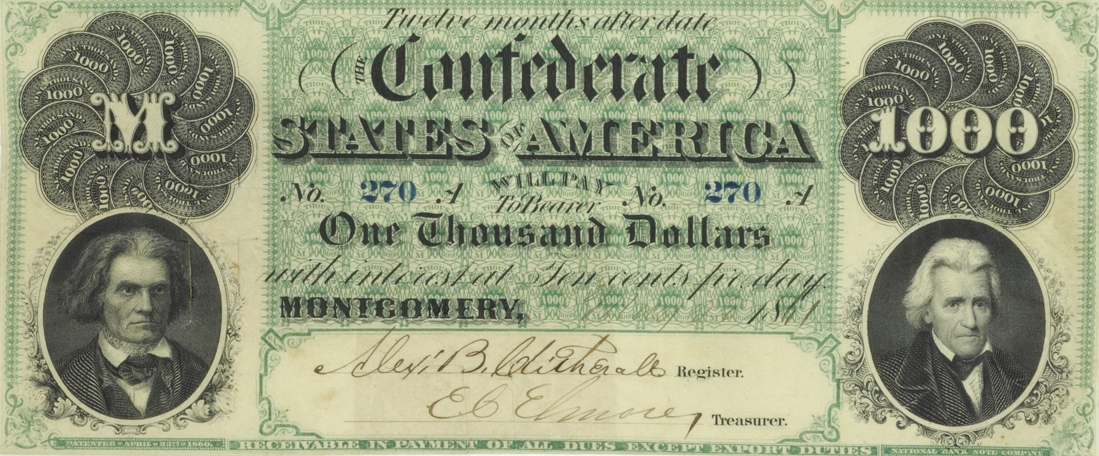 Twelve months after date
THE Confederate
STATES OF AMERICA
M
1000
No. 270 A WILL PAY To Bearer No. 270 A
One Thousand Dollars
with interest at Ten cents per day
MONTGOMERY, 1861
Alex. B. Clitherall Register.
E C Elmore, Treasurer.
PATENTED APRIL 23RD 1860.
RECEIVABLE IN PAYMENT OF ALL DUES EXCEPT EXPORT DUTIES
NATIONAL BANK NOTE COMPANY